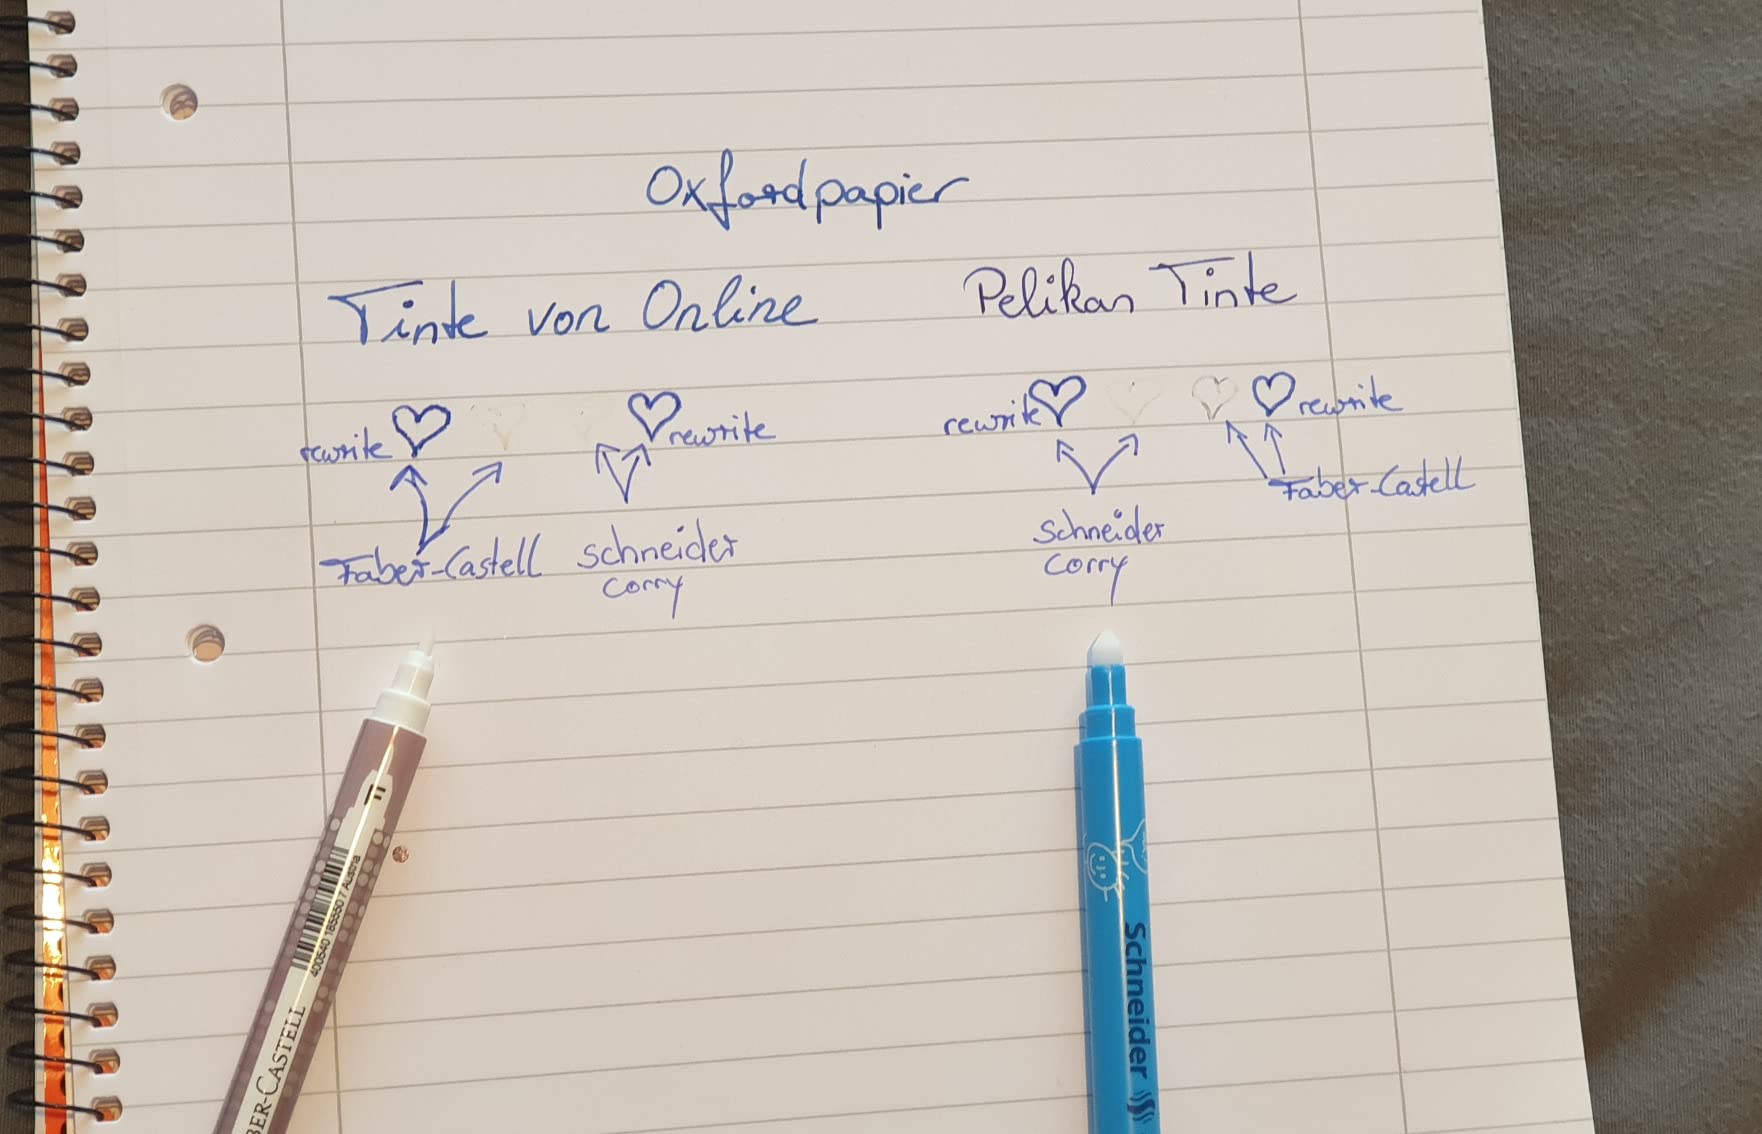 Oxfordpapier
Tinte von Online
Pelikan Tinte
rewrite
rewrite
rewrite
rewrite
Faber-Castell
Schneider
Corry
Schneider
Corry
Faber-Castell
BER-CASTELL
400540 185550 7 Austria
F
Schneider